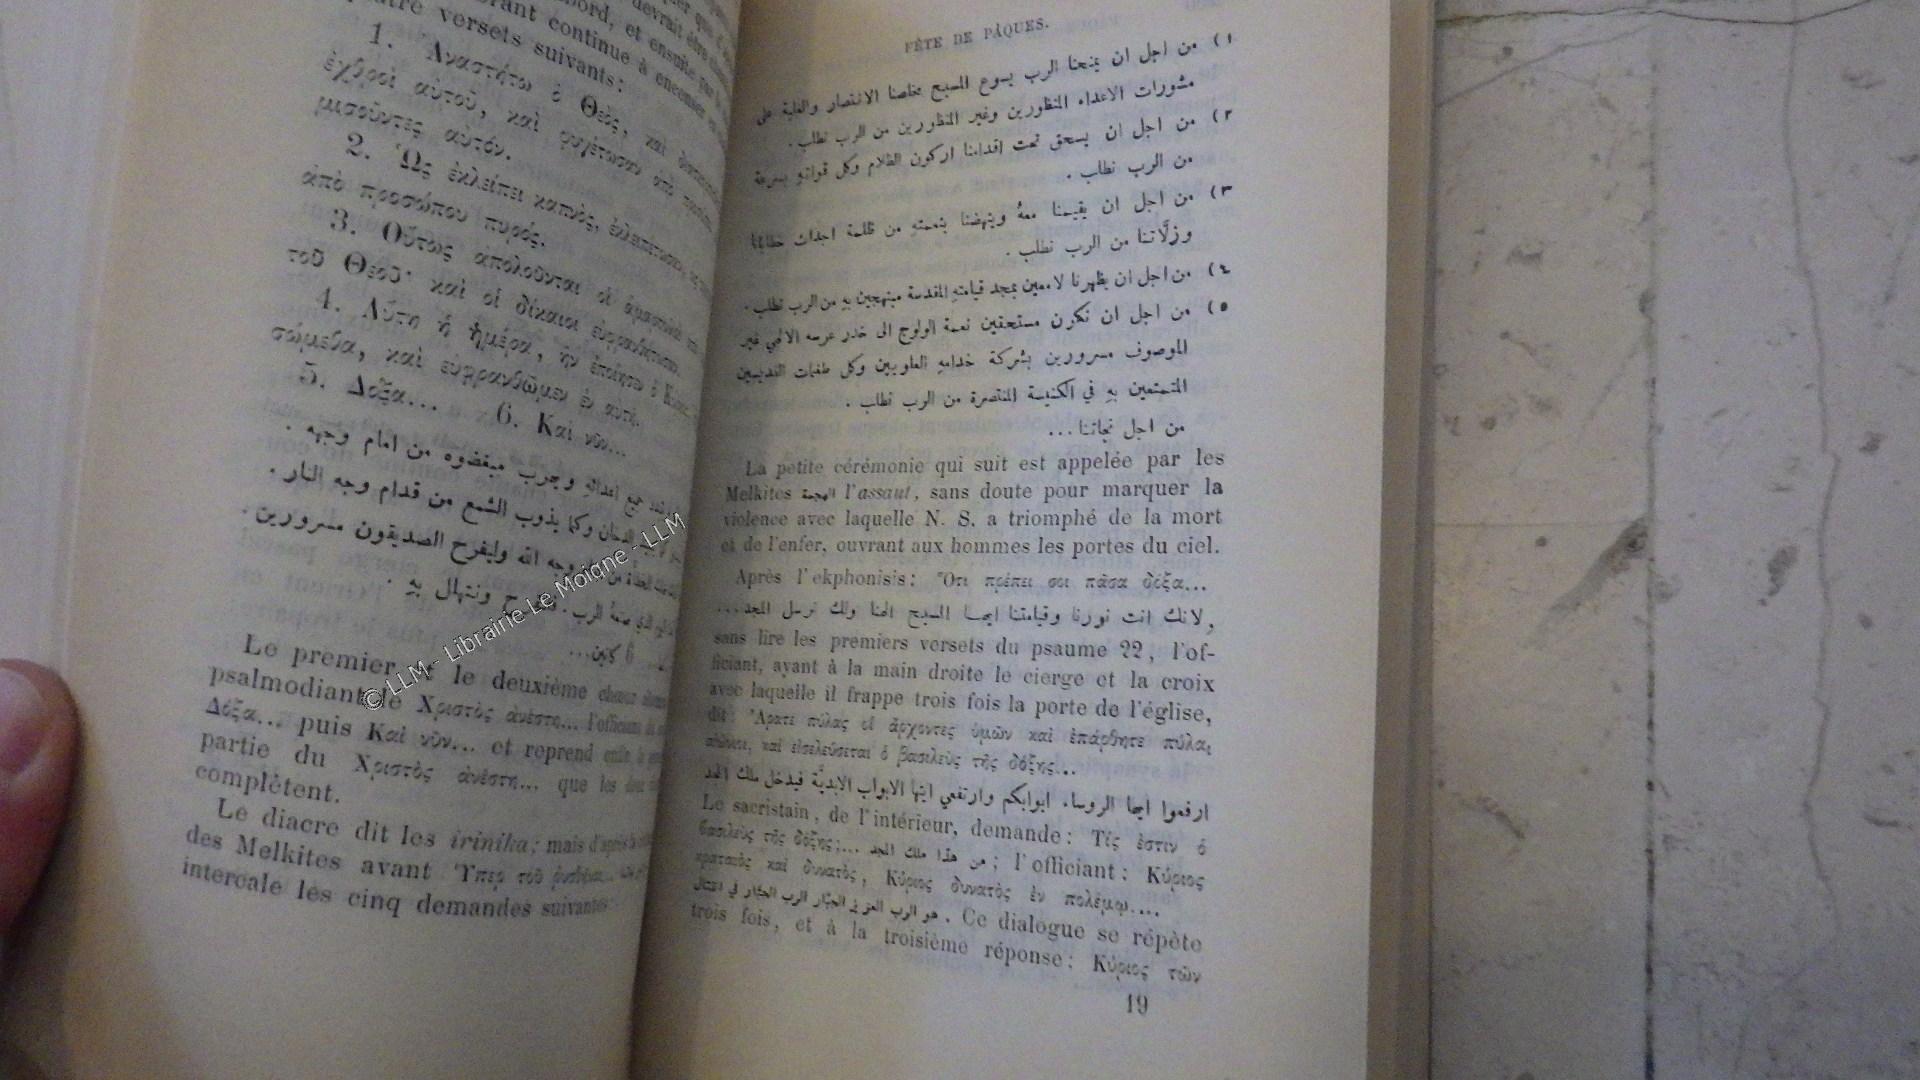 bord, et ensuite que le
brant continue à encenser
quatre versets suivants:
1. Ἀναστήτω ὁ Θεός, καὶ
ἐχθροὶ αὐτοῦ, καὶ φυγέτωσαν ἀπὸ
μισοῦντες αὐτόν.
2. Ὡς ἐκλείπει καπνὸς, ἐκλιπέτωσαν
ἀπὸ προσώπου πυρός.
3. Οὕτως ἀπολοῦνται οἱ ἁμαρτωλοὶ
τοῦ Θεοῦ· καὶ οἱ δίκαιοι εὐφρανθήτωσαν.
4. Αὕτη ἡ ἡμέρα, ἣν ἐποίησεν ὁ
σώμεθα, καὶ εὐφρανθῶμεν ἐν αὐτῇ.
5. Δόξα... 6. Καὶ νῦν...
جميع اعدائهِ ويهرب مبغضوه من امام وجهه .
الدخان وكما يذوب الشمع من قدام وجه النار .
وجه الله وليفرح الصديقون مسرورين .
الرب . ونتهلل بهِ .
Le premier le deuxième chœur
psalmodiant le Χριστὸς ἀνέστη... l'officiant
Δόξα... puis Καὶ νῦν... et reprend
partie du Χριστὸς ἀνέστη... que les
complètent.
Le diacre dit les irinika; mais d'après
des Melkites avant Ὑπὲρ τοῦ
intercale les cinq demandes suivantes:
© LLM - Librairie Le Moigne - LLM
FÊTE DE PÂQUES.
١) من اجل ان يمنحنا الرب يسوع المسيح مخلصنا الانتصار والغلبة على
مشورات الاعداء المنظورين وغير المنظورين من الرب نطلب .
٢) من اجل ان يسحق تحت اقدامنا اركون الظلام وكل قواتهِ بسرعة
من الرب نطلب .
٣) من اجل ان يقيمنا معهُ وينهضنا بنعمتهِ من ظلمة اجداث خطايانا
وزلَّاتنا من الرب نطلب .
٤) من اجل ان يظهرنا لامعين بمجد قيامتهِ المقدسة مبتهجين بهِ من الرب نطلب .
٥) من اجل ان نكون مستحقين نعمة الولوج الى خدر عرسه الالهي غير
الموصوف مسرورين بشركة خدامهِ العلويين وكل طغمات القديسين
المتمتعين بهِ في الكنيسة المنتصرة من الرب نطلب .
من اجل نجاتنا...
La petite cérémonie qui suit est appelée par les
Melkites الهجمة l'assaut, sans doute pour marquer la
violence avec laquelle N. S. a triomphé de la mort
et de l'enfer, ouvrant aux hommes les portes du ciel.
Après l'ekphonisis: Ὅτι πρέπει σοι πᾶσα δόξα...
لانك انت نورنا وقيامتنا ايها المسيح الهنا ولك نرسل المجد...,
sans lire les premiers versets du psaume 22, l'of-
ficiant, ayant à la main droite le cierge et la croix
avec laquelle il frappe trois fois la porte de l'église,
dit: Ἄρατε πύλας οἱ ἄρχοντες ὑμῶν καὶ ἐπάρθητε πύλαι
αἰώνιοι, καὶ εἰσελεύσεται ὁ βασιλεὺς τῆς δόξης...
ارفعوا ايها الروساء ابوابكم وارتفعي ايتها الابواب الابديَّة فيدخل ملك المجد
Le sacristain, de l'intérieur, demande: Τίς ἐστιν ὁ
βασιλεὺς τῆς δόξης;... من هذا ملك المجد ; l'officiant: Κύριος
κραταιὸς καὶ δυνατὸς, Κύριος δυνατὸς ἐν πολέμῳ....
هو الرب العزيز الجبَّار الرب الجبَّار في القتال . Ce dialogue se répète
trois fois, et à la troisième réponse: Κύριος τῶν
19